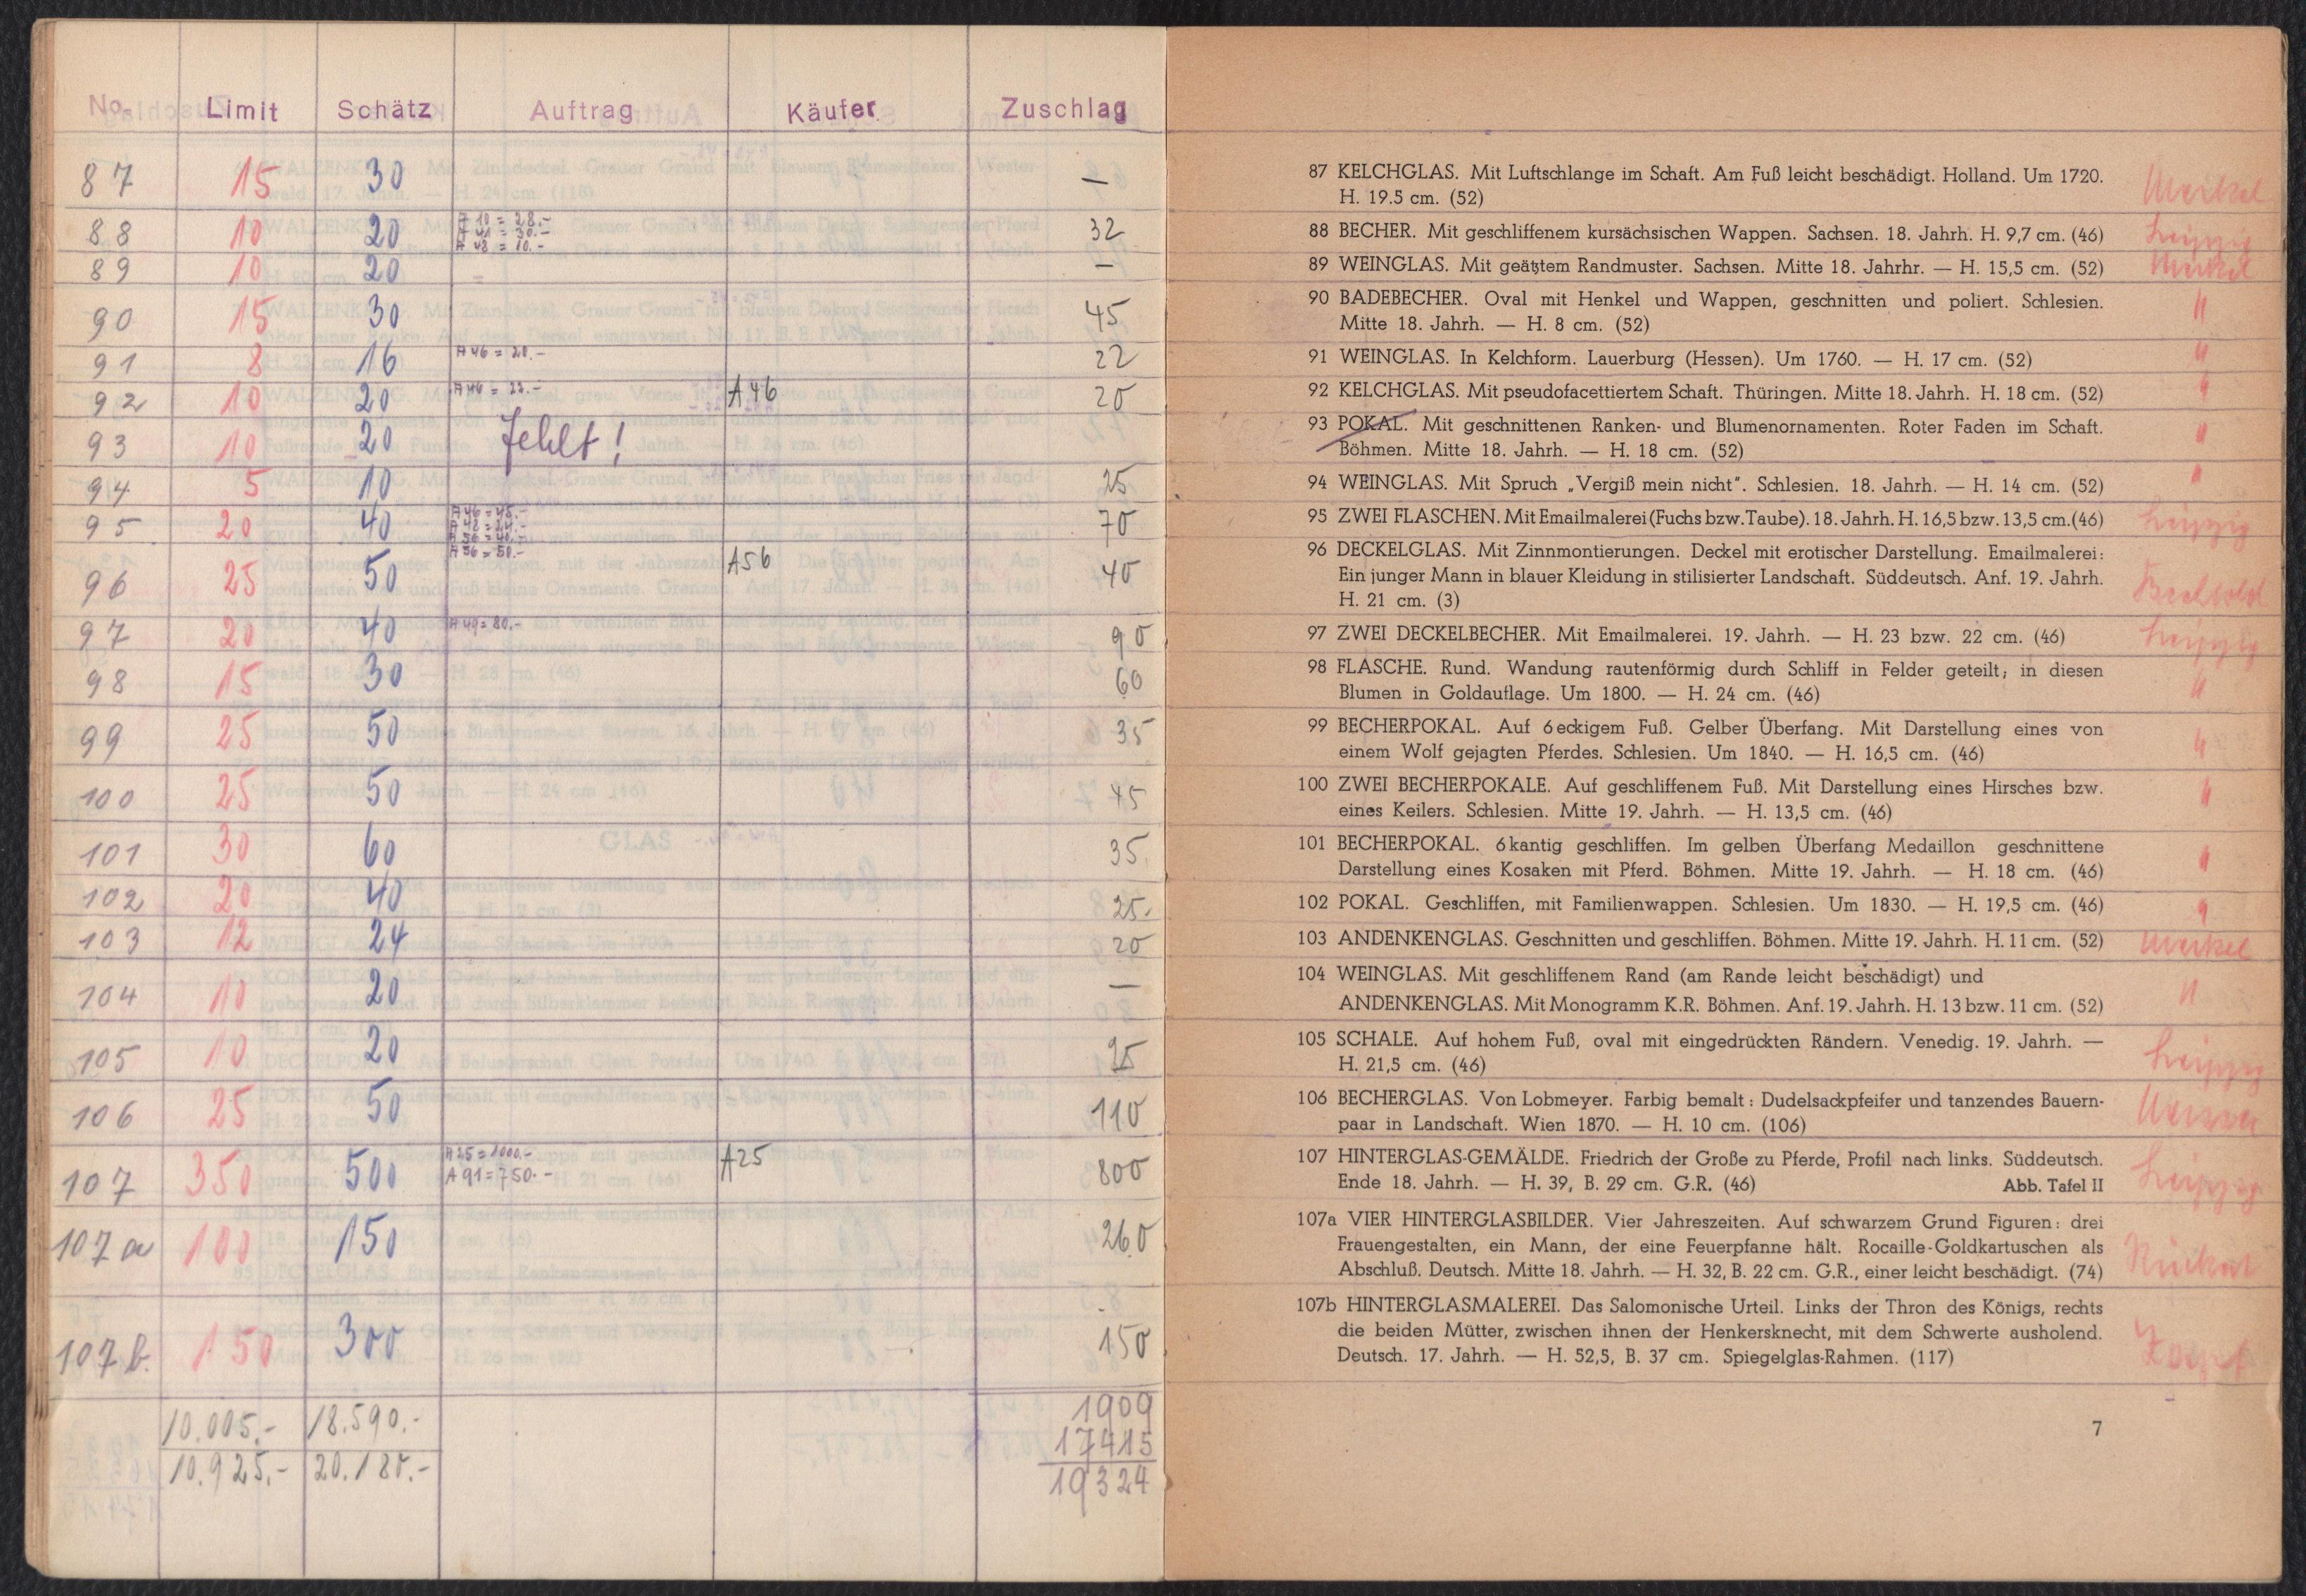 No. Limit Schätz Auftrag Käufer Zuschlag
87 15 30 —
88 10 20 A 10 = 28.- 32
A 41 = 30.-
A 48 = 10.-
89 10 20 = —
90 15 30 45
91 8 16 A 46 = 20.- 22
92 10 20 A 46 = 22.- A46 20
93 10 20 Fehlt!
94 5 10 25
95 20 40 A 46 = 45.- 70
A 56 = 40.-
96 25 50 A 56 = 50.- A56 40
97 20 40 A 49 = 80.- 90
98 15 30 60
99 25 50 35
100 25 50 45
101 30 60 35
102 20 40 25.
103 12 24 20
104 10 20 —
105 10 20 25
106 25 50 110
107 350 500 A 25 = 1000.- A25 800
A 91 = 750.-
107a 100 150 260
107b. 150 300 150
10.005.- 18.590.- 1909
17415
10.925.- 20.180.- 19324
87 KELCHGLAS. Mit Luftschlange im Schaft. Am Fuß leicht beschädigt. Holland. Um 1720. Merkel
H. 19.5 cm. (52)
88 BECHER. Mit geschliffenem kursächsischen Wappen. Sachsen. 18. Jahrh. H. 9,7 cm. (46) Leipzig
89 WEINGLAS. Mit geätztem Randmuster. Sachsen. Mitte 18. Jahrhr. — H. 15,5 cm. (52) Merkel
90 BADEBECHER. Oval mit Henkel und Wappen, geschnitten und poliert. Schlesien. "
Mitte 18. Jahrh. — H. 8 cm. (52)
91 WEINGLAS. In Kelchform. Lauerburg (Hessen). Um 1760. — H. 17 cm. (52) "
92 KELCHGLAS. Mit pseudofacettiertem Schaft. Thüringen. Mitte 18. Jahrh. H. 18 cm. (52) "
93 POKAL. Mit geschnittenen Ranken- und Blumenornamenten. Roter Faden im Schaft. "
Böhmen. Mitte 18. Jahrh. — H. 18 cm. (52)
94 WEINGLAS. Mit Spruch „Vergiß mein nicht". Schlesien. 18. Jahrh. — H. 14 cm. (52) "
95 ZWEI FLASCHEN. Mit Emailmalerei (Fuchs bzw. Taube). 18. Jahrh. H. 16,5 bzw. 13,5 cm. (46) Leipzig
96 DECKELGLAS. Mit Zinnmontierungen. Deckel mit erotischer Darstellung. Emailmalerei:
Ein junger Mann in blauer Kleidung in stilisierter Landschaft. Süddeutsch. Anf. 19. Jahrh.
H. 21 cm. (3)
97 ZWEI DECKELBECHER. Mit Emailmalerei. 19. Jahrh. — H. 23 bzw. 22 cm. (46) Leipzig
98 FLASCHE. Rund. Wandung rautenförmig durch Schliff in Felder geteilt; in diesen
Blumen in Goldauflage. Um 1800. — H. 24 cm. (46) "
99 BECHERPOKAL. Auf 6eckigem Fuß. Gelber Überfang. Mit Darstellung eines von
einem Wolf gejagten Pferdes. Schlesien. Um 1840. — H. 16,5 cm. (46) "
100 ZWEI BECHERPOKALE. Auf geschliffenem Fuß. Mit Darstellung eines Hirsches bzw. "
eines Keilers. Schlesien. Mitte 19. Jahrh. — H. 13,5 cm. (46)
101 BECHERPOKAL. 6kantig geschliffen. Im gelben Überfang Medaillon geschnittene "
Darstellung eines Kosaken mit Pferd. Böhmen. Mitte 19. Jahrh. — H. 18 cm. (46)
102 POKAL. Geschliffen, mit Familienwappen. Schlesien. Um 1830. — H. 19,5 cm. (46) "
103 ANDENKENGLAS. Geschnitten und geschliffen. Böhmen. Mitte 19. Jahrh. H. 11 cm. (52) Merkel
104 WEINGLAS. Mit geschliffenem Rand (am Rande leicht beschädigt) und "
ANDENKENGLAS. Mit Monogramm K.R. Böhmen. Anf. 19. Jahrh. H. 13 bzw. 11 cm. (52)
105 SCHALE. Auf hohem Fuß, oval mit eingedrückten Rändern. Venedig. 19. Jahrh. — Leipzig
H. 21,5 cm. (46)
106 BECHERGLAS. Von Lobmeyer. Farbig bemalt: Dudelsackpfeifer und tanzendes Bauern-
paar in Landschaft. Wien 1870. — H. 10 cm. (106)
107 HINTERGLAS-GEMÄLDE. Friedrich der Große zu Pferde, Profil nach links. Süddeutsch. Leipzig
Ende 18. Jahrh. — H. 39, B. 29 cm. G.R. (46) Abb. Tafel II
107a VIER HINTERGLASBILDER. Vier Jahreszeiten. Auf schwarzem Grund Figuren: drei
Frauengestalten, ein Mann, der eine Feuerpfanne hält. Rocaille-Goldkartuschen als
Abschluß. Deutsch. Mitte 18. Jahrh. — H. 32, B. 22 cm. G.R., einer leicht beschädigt. (74)
107b HINTERGLASMALEREI. Das Salomonische Urteil. Links der Thron des Königs, rechts
die beiden Mütter, zwischen ihnen der Henkersknecht, mit dem Schwerte ausholend.
Deutsch. 17. Jahrh. — H. 52,5, B. 37 cm. Spiegelglas-Rahmen. (117)
7